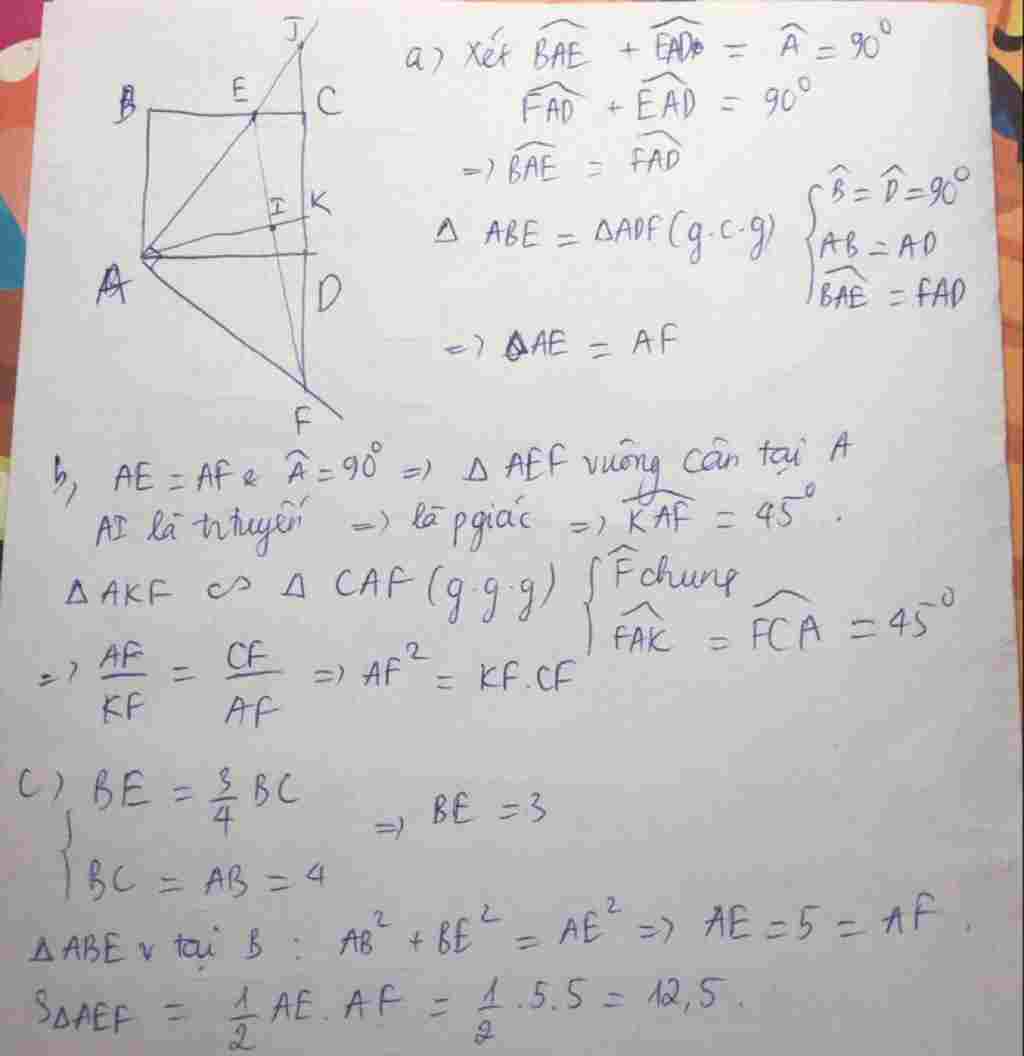 J
B E C
I K
A D
F
a) Xét B̂AE + ÊAD = Â = 90⁰
F̂AD + ÊAD = 90⁰
=> B̂AE = F̂AD
Δ ABE = ΔADF (g.c.g) { B̂ = D̂ = 90⁰
AB = AD
B̂AE = FAD
=> AE = AF
b, AE = AF & Â = 90⁰ => Δ AEF vuông cân tại A
AI là tr tuyến => là pgiác => K̂AF = 45⁰.
Δ AKF ∽ Δ CAF (g.g.g) { F̂ chung
F̂AK = F̂CA = 45⁰
=> AF/KF = CF/AF => AF² = KF.CF
c) { BE = 3/4 BC
BC = AB = 4
=> BE = 3
ΔABE v tại B : AB² + BE² = AE² => AE = 5 = AF.
SΔAEF = 1/2 AE. AF = 1/2 .5.5 = 12,5.